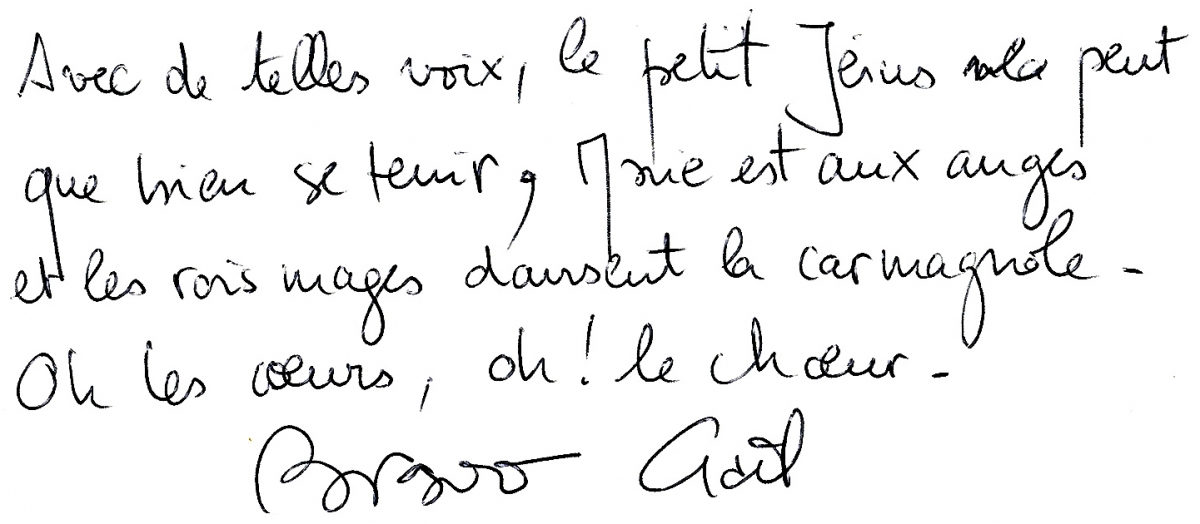 Avec de telles voix, le petit Jésus ne peut
que bien se tenir, Marie est aux anges
et les rois mages dansent la carmagnole -
Oh les cœurs, oh! le chœur -
Bravo Gaël